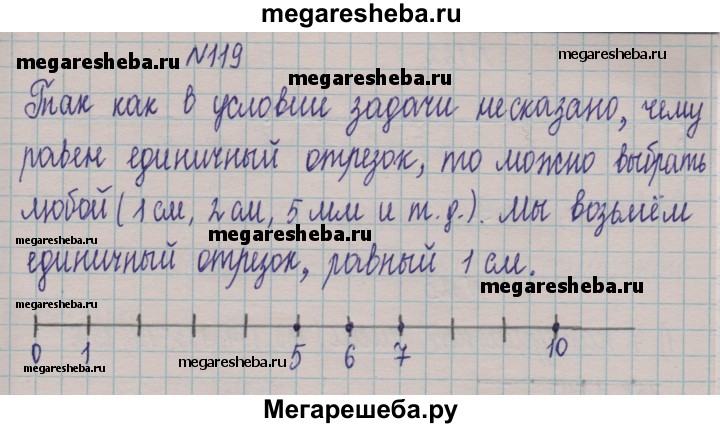 megaresheba.ru
megaresheba.ru
№119
megaresheba.ru
megaresheba.ru
Так как в условии задачи несказано, чему
равен единичный отрезок, то можно выбрать
любой (1 см, 2 см, 5 мм и т.д.). Мы возьмём
megaresheba.ru
megaresheba.ru
единичный отрезок, равный 1 см.
megaresheba.ru
megaresheba.ru
0 1 5 6 7 10
megaresheba.ru
megaresheba.ru
Мегарешеба.ру